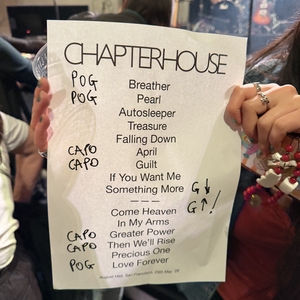 CHAPTERHOUSE
POG Breather
POG Pearl
Autosleeper
Treasure
Falling Down
CAPO April
CAPO Guilt
If You Want Me
Something More G↓
--- G↑!
Come Heaven
In My Arms
CAPO Greater Power
CAPO Then We'll Rise
Precious One
POG Love Forever
August Hall, San Francisco,